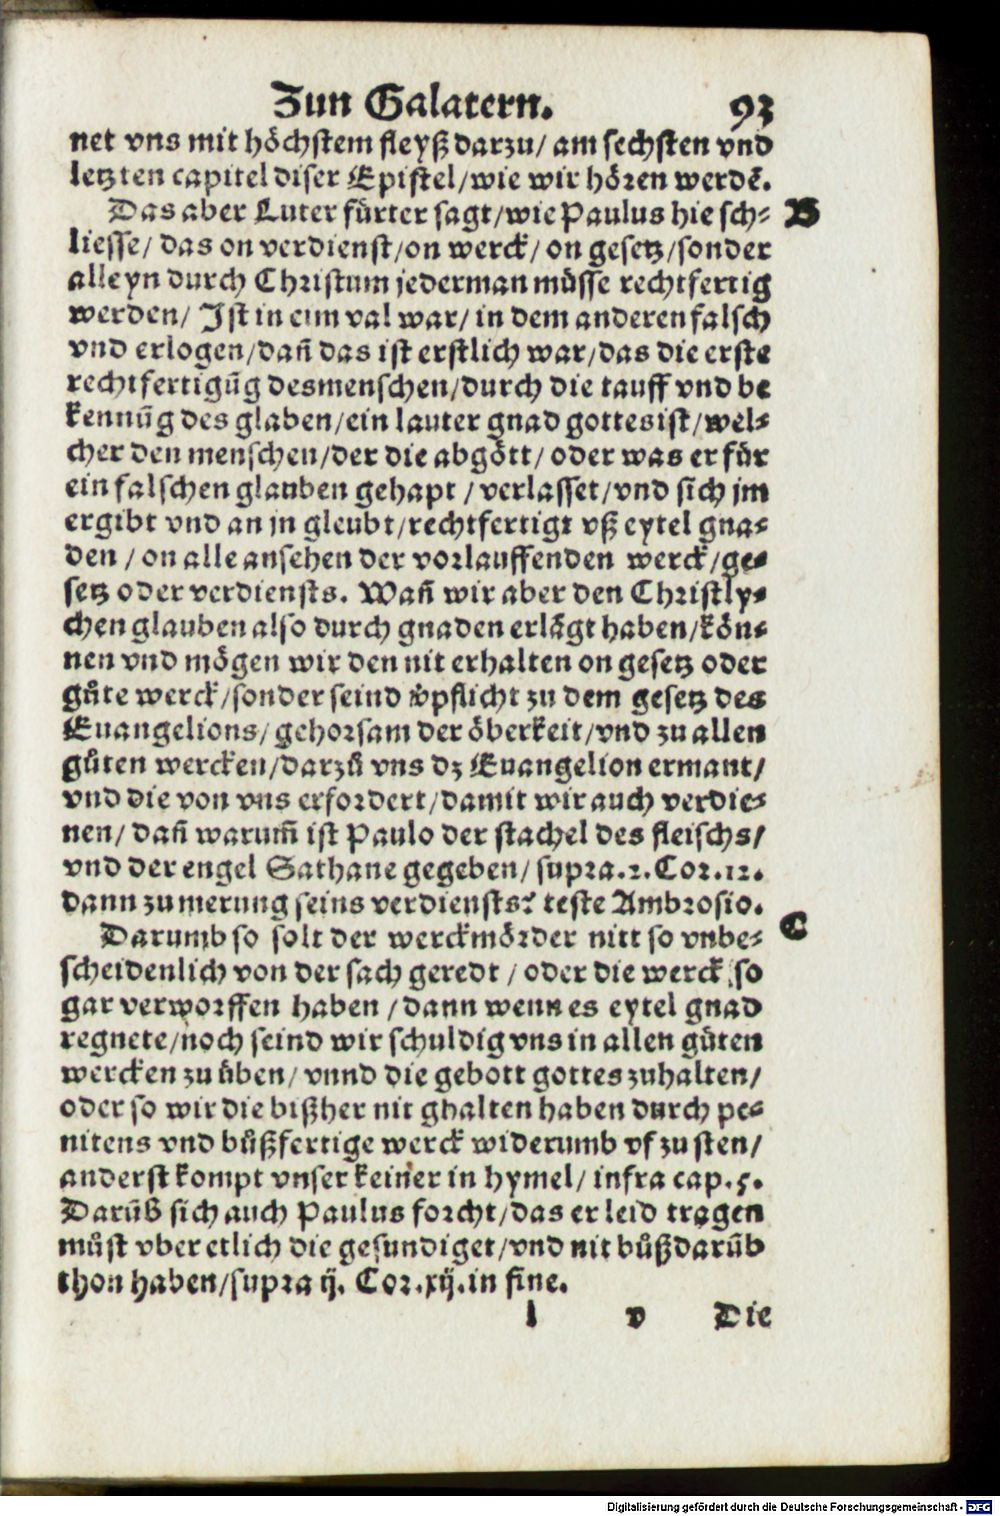 Zun Galatern. 93
net vns mit höchstem fleyß darzu/ am sechsten vnd
letzten capitel diser Epistel/wie wir hören werdē.
Das aber Luter fürter sagt/wie Paulus hie sch⸗ B
liesse/ das on verdienst/on werck/ on gesetz/sonder
alleyn durch Christum jederman müsse rechtfertig
werden/ Ist in eim val war/ in dem anderen falsch
vnd erlogen/dañ das ist erstlich war/das die erste
rechtfertigūg desmenschen/durch die tauff vnd be
kennūg des glaben/ein lauter gnad gottes ist/wel⸗
cher den menschen/der die abgött/ oder was er für
ein falschen glauben gehapt / verlasset/vnd sich jm
ergibt vnd an jn gleubt/rechtfertigt vß eytel gna⸗
den / on alle ansehen der vorlauffenden werck/ge⸗
setz oder verdiensts. Wañ wir aber den Christly⸗
chen glauben also durch gnaden erlāgt haben/kön⸗
nen vnd mögen wir den nit erhalten on gesetz oder
gůte werck/sonder seind v̄pflicht zu dem gesetz des
Euangelions/ gehorsam der öberkeit/vnd zu allen
gůten wercken/darzů vns dz Euangelion ermant/
vnd die von vns erfordert/damit wir auch verdie⸗
nen/ dañ warum̄ ist Paulo der stachel des fleischs/
vnd der engel Sathane gegeben/ supra.2.Cor.12.
dann zu merung seins verdiensts? teste Ambrosio.
Darumb so solt der werckmörder nitt so vnbe⸗ C
scheidenlich von der sach geredt / oder die werck so
gar verworffen haben / dann wenn es eytel gnad
regnete/noch seind wir schuldig vns in allen gůten
wercken zu üben/ vnnd die gebott gottes zuhalten/
oder so wir die bißher nit ghalten haben durch pe⸗
nitens vnd bůßfertige werck widerumb vf zu sten/
anderst kompt vnser keiner in hymel/ infra cap.5.
Darūb sich auch Paulus forcht/das er leid tragen
můst vber etlich die gesundiget/vnd nit bůß darūb
thon haben/supra ij. Cor.xij.in fine.
l v Die
Digitalisierung gefördert durch die Deutsche Forschungsgemeinschaft - DFG